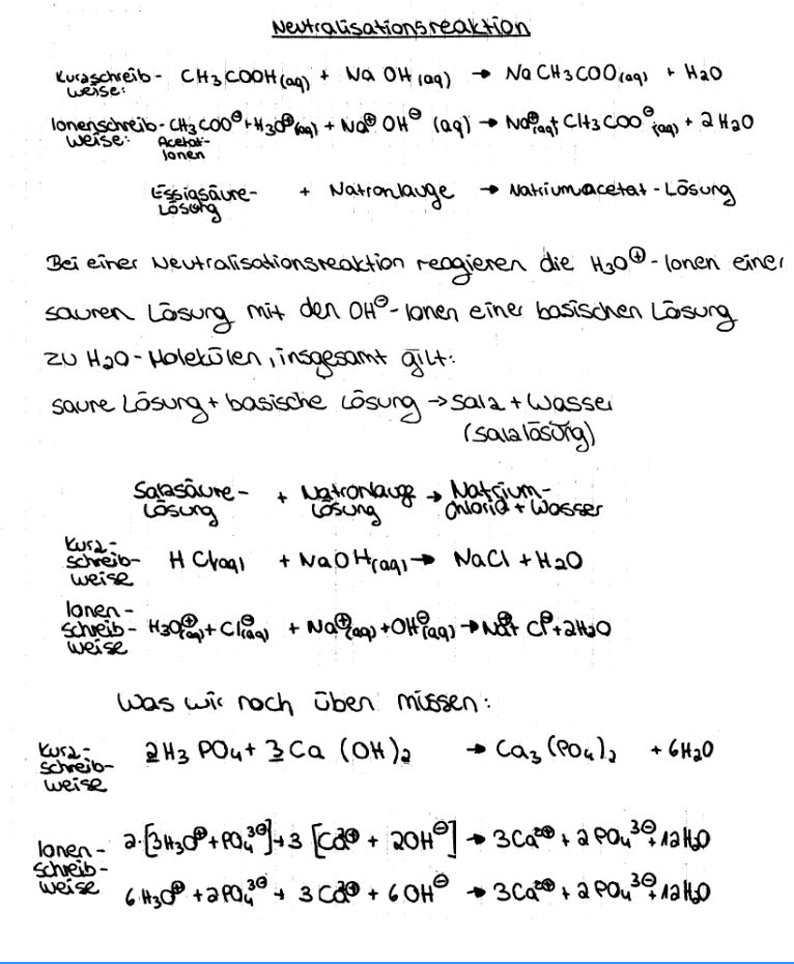 Neutralisationsreaktion
Kurzschreib- CH₃COOH(aq) + NaOH(aq) → NaCH₃COO(aq) + H₂O
weise:
Ionenschreib- CH₃COO⊖ + H₃O⊕(aq) + Na⊕ OH⊖ (aq) → Na⊕(aq) + CH₃COO⊖(aq) + 2H₂O
weise: Acetat-
Ionen
Essigsäure- + Natronlauge → Natriumacetat-Lösung
Lösung
Bei einer Neutralisationsreaktion reagieren die H₃O⊕-Ionen einer
sauren Lösung mit den OH⊖-Ionen einer basischen Lösung
zu H₂O-Molekülen, insgesamt gilt:
saure Lösung + basische Lösung → Salz + Wasser
(Salzlösung)
Salzsäure- + Natronlauge → Natrium-
Lösung Lösung chlorid + Wasser
Kurz-
schreib- HCl(aq) + NaOH(aq) → NaCl + H₂O
weise
Ionen-
schreib- H₃O⊕(aq) + Cl⊖(aq) + Na⊕(aq) + OH⊖(aq) → Na⊕ + Cl⊖ + 2H₂O
weise
Was wir noch üben müssen:
Kurz- 2H₃PO₄ + 3Ca(OH)₂ → Ca₃(PO₄)₂ + 6H₂O
schreib-
weise
Ionen- 2·[3H₃O⊕ + PO₄³⊖] + 3[Ca²⊕ + 2OH⊖] → 3Ca²⊕ + 2PO₄³⊖ + 12H₂O
schreib-
weise 6H₃O⊕ + 2PO₄³⊖ + 3Ca²⊕ + 6OH⊖ → 3Ca²⊕ + 2PO₄³⊖ + 12H₂O